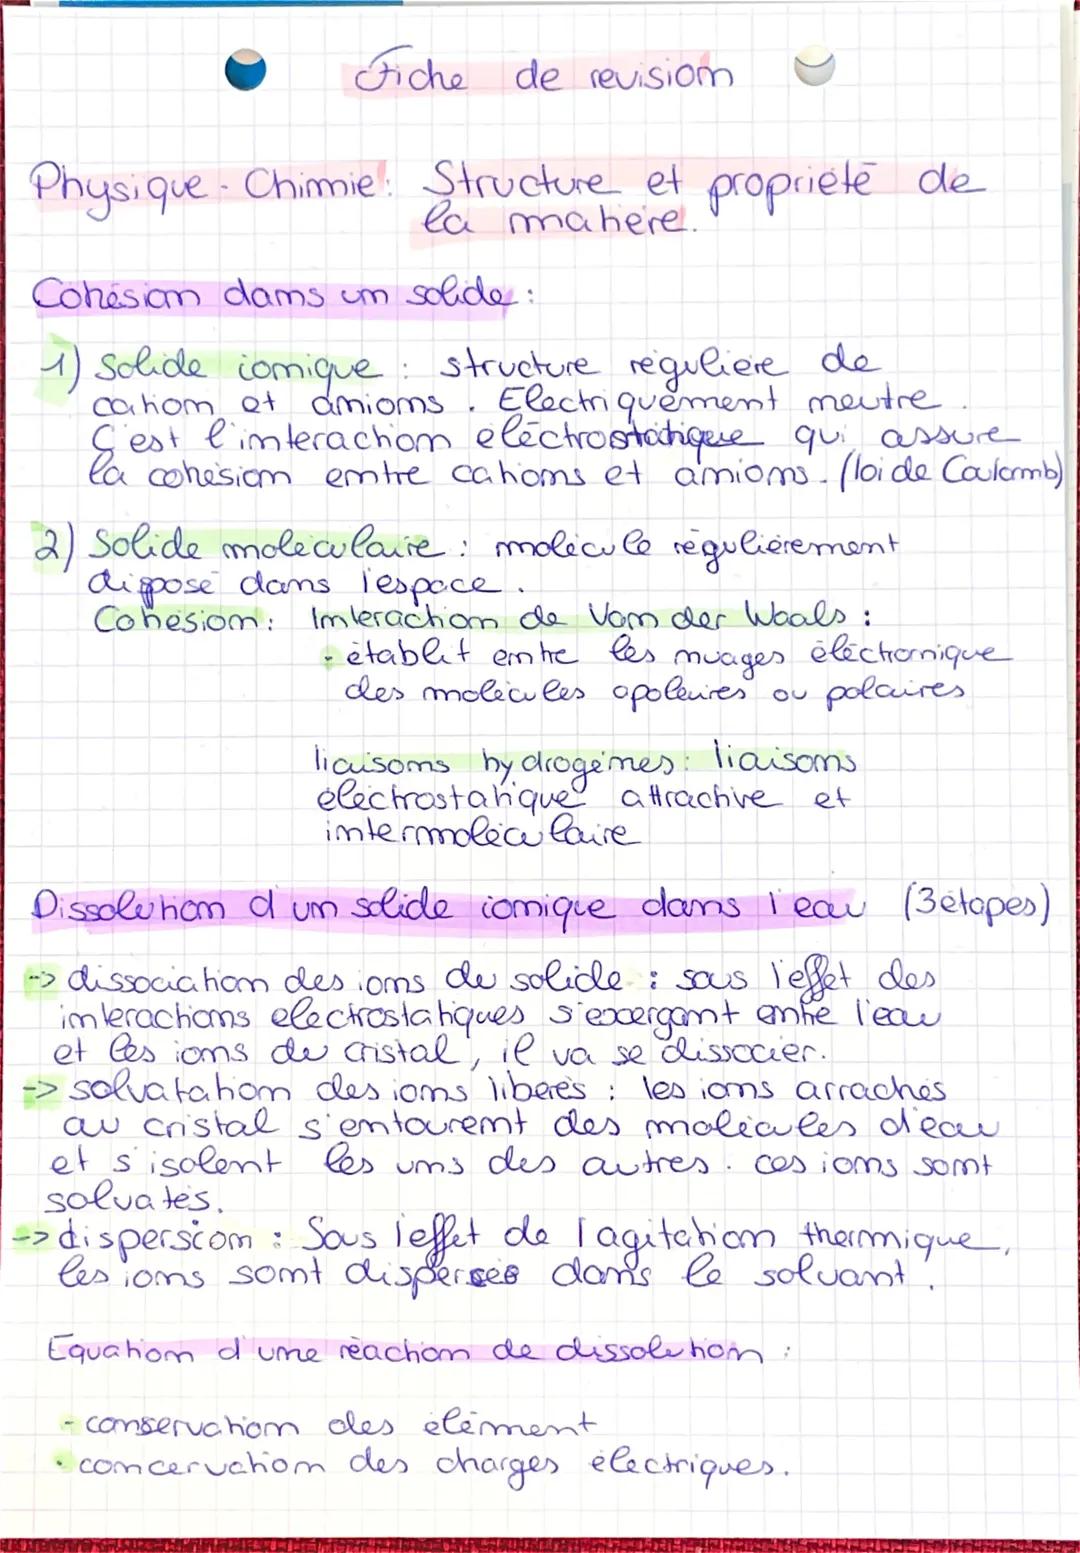 Fiche de revision
Physique-Chimie: Structure et propriété de
la matière.
Cohésion dans un solide :
1) Solide ionique : structure régulière de
cation et anions. Electriquement neutre.
C'est l'interaction éléctrostatique qui assure
la cohésion entre cations et anions. (loi de Coulomb)
2) Solide moléculaire : molécule régulièrement
disposé dans l'espace.
Cohésion : Interaction de Van der Waals :
- établit entre les nuages éléctronique
des molécules apolaires ou polaires
liaisons hydrogènes : liaisons
éléctrostatique attractive et
intermoléculaire
Dissolution d'un solide ionique dans l'eau (3 étapes)
-> dissociation des ions du solide : sous l'effet des
interactions electrostatiques s'exerçant entre l'eau
et les ions du cristal, il va se dissocier.
-> solvatation des ions liberés : les ions arrachés
au cristal s'entourent des molécules d'eau
et s'isolent les uns des autres. ces ions sont
solvatés.
-> dispersion : Sous l'effet de l'agitation thermique,
les ions sont dispersés dans le solvant.
Equation d'une réaction de dissolution :
- conservation des élément
· concervation des charges électriques.